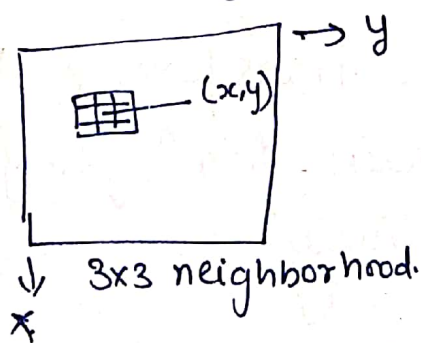 → y
(x,y)
↓ 3x3 neighborhood.
x